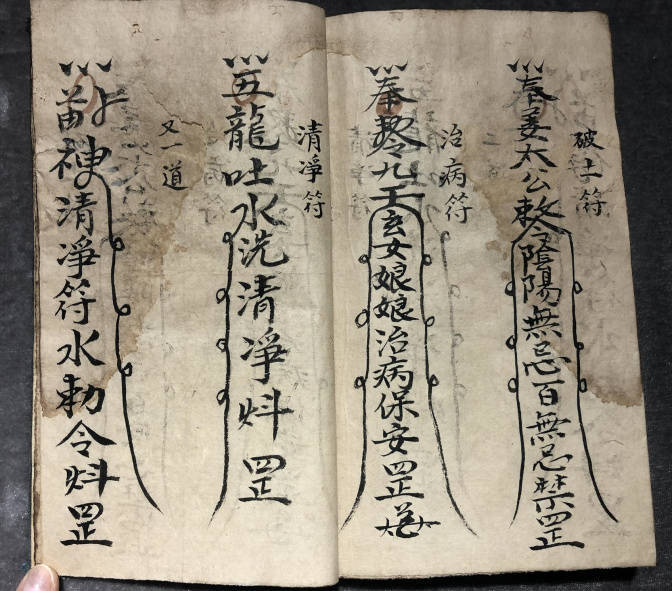 破土符
奉姜太公敕令陰陽無忌百無忌禁罡
治病符
奉敕令九玄女娘娘治病保安罡
清凈符
五龍吐水洗清凈炓罡
又一道
清凈符水勅令炓罡